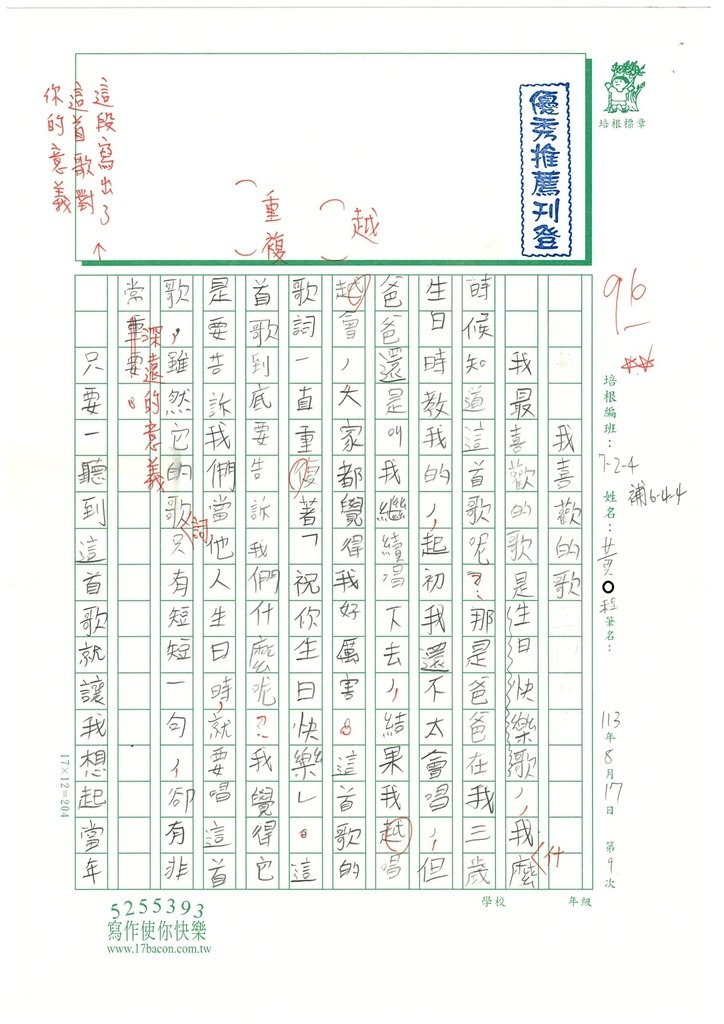 優秀推薦刊登
培根標章
越
重複
這段寫出了
這首歌對
你的意義
96
培根編班：7-2-4
補6-4-4
姓名：黃○程
筆名：
113年8月17日 第9次
年級
學校
我喜歡的歌
我最喜歡的歌是生日快樂歌，我麼
什
時候知道這首歌呢？那是爸爸在我三歲
生日時教我的，起初我還不太會唱，但
爸爸還是叫我繼續唱下去，結果我越唱
越會，大家都覺得我好厲害。這首歌的
歌詞一直重復著「祝你生日快樂」。這
首歌到底要告訴我們什麼呢？我覺得它
是要告訴我們當他人生日時，就要唱這首
歌，雖然它的歌只有短短一句，卻有非
詞
常重要。
深遠的意義
只要一聽到這首歌就讓我想起當年
17×12=204
5255393
寫作使你快樂
www.17bacon.com.tw